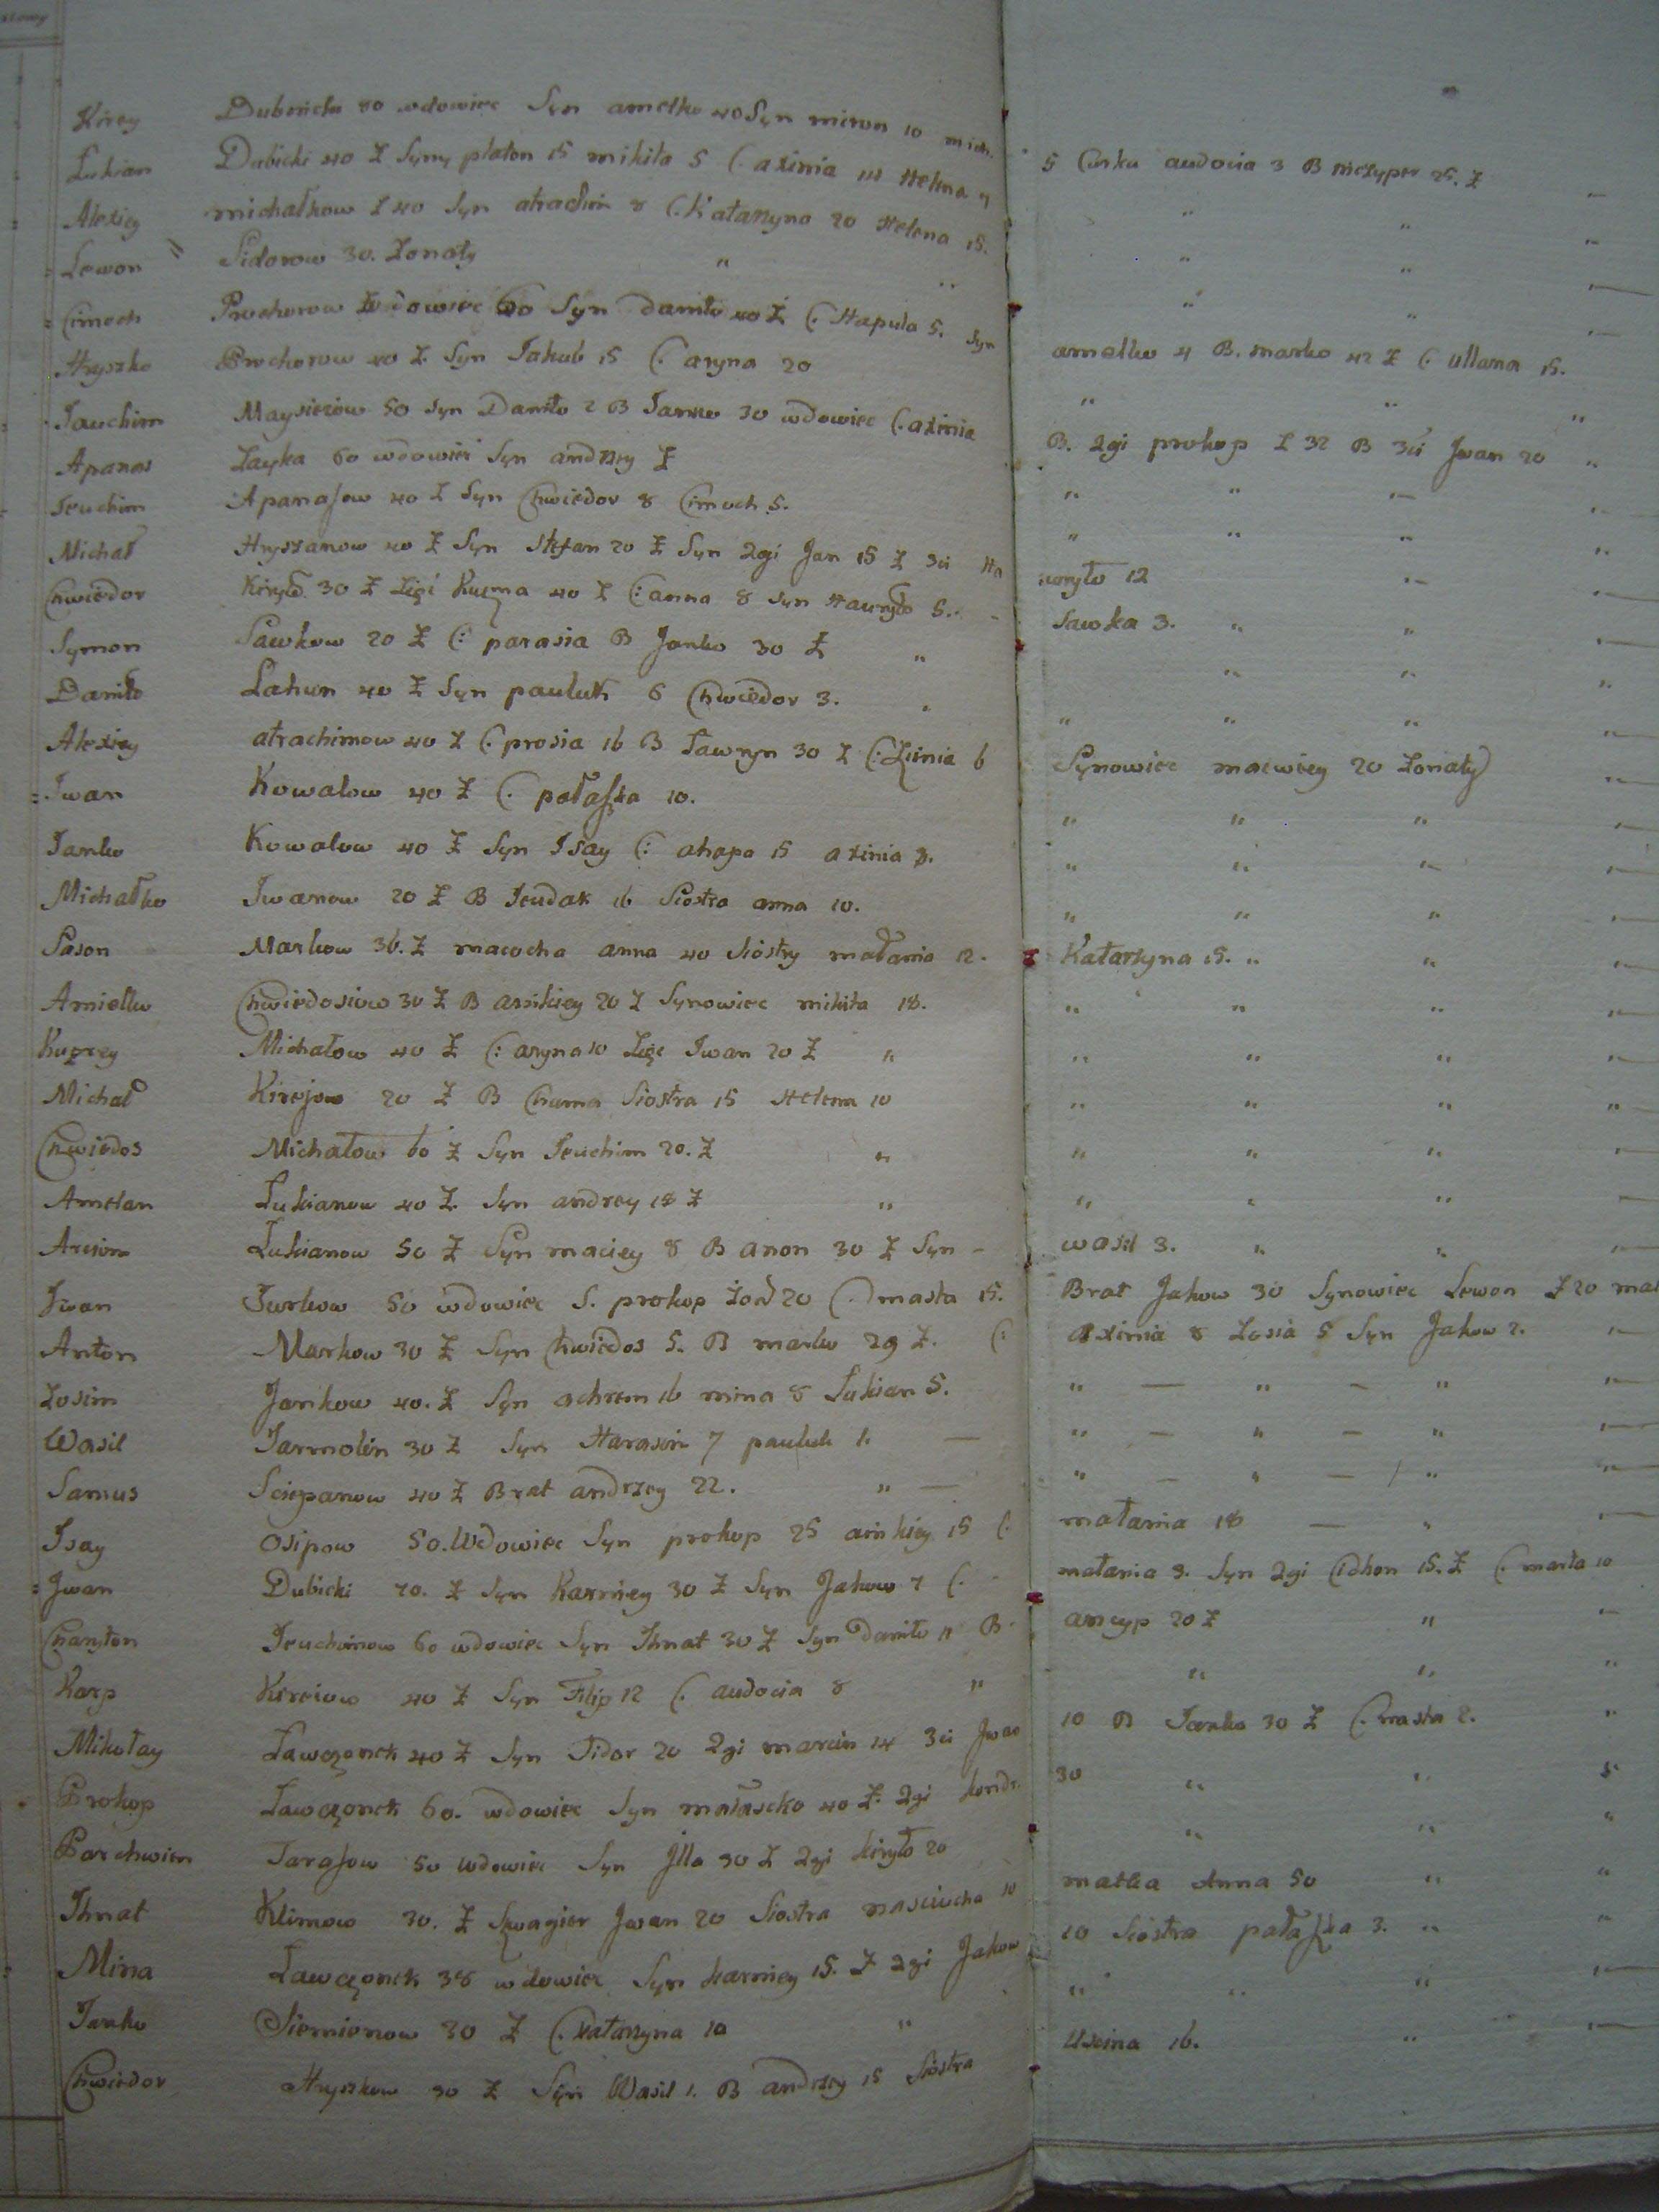 Kirey Duboncka 80 wdowiec Syn amelko 40 Syn miron 10 mich. 5 Curka audocia 3 B niczyper 25. Ż
Łukian Dubicki 40 Ż Syny płaton 15 mikita 5 C. axinia 10 Helena 7
Alexiey michałkow Ż 40 Syn atrachim 8 C. Katarzyna 20 Helena 15.
Lewon Sidorow 30. Żonaty
Cimoch Prochorow Wdowiec 60 Syn Daniło 40 Ż C. Hapula 5. Syn amelko 4 B. marko 42 Ż C. ullana 15.
Hryszko Prochorow 40 Ż Syn Jakub 15 C. aryna 20
Jauchim Maysieiow 50 Syn Daniło 2 B Janko 30 wdowiec C. axinia B. 2gi prokop Ż 32 B 3ci Jwan 20
Apanas Zayka 60 wdowiec Syn andrzey Ż
Jeuchim Apanasow 40 Ż Syn Chwiedor 8 Cimoch 5.
Michał Hryszanow 40 Ż Syn Stefan 20 Ż Syn 2gi Jan 15 Ż 3ci Hauryło 12
Chwiedor Kiryło 30 Ż Zięć Kuzma 40 Ż C: anna 8 Syn Hauryło 5. Sawka 3.
Symon Sawkow 20 Ż C: parasia B Janko 30 Ż
Daniło Łahun 40 Ż Syn pauluk 6 Chwiedor 3.
Alexiey atrachimow 40 Ż C. prosia 16 B Ławryn 30 Ż C: Zinia 6 Synowiec macwiey 20 Żonaty
Jwan Kowalow 40 Ż C. połaszka 10.
Janko Kowalow 40 Ż Syn Isay C: ahapa 15 axinia 8.
Michałko Jwanow 20 Ż B Jeudak 16 Siostra anna 10.
Sason Markow 36. Ż macocha anna 40 Siostry małania 12. Katarzyna 15.
Amielko Chwiedosiow 30 Ż B annikiey 20 Ż Synowiec mikita 18.
Kuprey Michałow 40 Ż C: aryna 10 Zięć Jwan 20 Ż
Michał Kirejow 20 Ż B Chama Siostra 15 Helena 10
Chwiedos Michałow 60 Ż Syn Jeuchim 20. Ż
Amelan Łukianow 40 Ż. Syn andrey 18 Ż
Arciom Łukianow 50 Ż Syn maciey 8 B anon 30 Ż Syn - wasil 3.
Jwan Jurkow 50 wdowiec S. prokop Żon 20 C. masta 15. Brat Jakow 30 Synowiec Lewon Ż 20
Anton Markow 30 Ż Syn Chwiedos 5. B marko 29 Ż. C: axinia 8 Zosia 5 Syn Jakow 2.
Zosim Jankow 40. Ż Syn achrem 16 mina 8 Łukian 5.
Wasil Jarmolin 30 Ż Syn Harasim 7 pauluk 1.
Samus Sciepanow 40 Ż Brat andrzey 22.
Isay osipow 50. Wdowiec Syn prokop 25 anikiey 15 C. małania 18
Jwan Dubicki 70. Ż Syn Karniey 30 Ż Syn Jakow 7 C. małania 9. Syn 2gi Cidhon 15. Ż C. marta 10
Charyton Jeuchimow 60 wdowiec Syn Ihnat 30 Ż Syn Daniło 11 B. ancyp 20 Ż
Karp Kireiow 40 Ż Syn Filip 12 C. audocia 8
Mikołay Ławczonek 40 Ż Syn Sidor 20 2gi marcin 14 3ci Jwan 10 B Janko 30 Ż C. nasta 2.
Prokop Ławczonek 60. wdowiec Syn małascko 40 Ż. 2gi kondr. 30
Parchwien Tarasow 50 wdowiec Syn Jlla 30 Ż 2gi kiryło 20
Ihnat Klimow 30. Ż Szwagier Jwan 20 Siostra nasciucha 10 matka Anna 50
Mina Ławczonek 38 wdowiec Syn karniey 15. Ż 2gi Jakow 10 Siostra połaszka 3.
Janko Siemionow 30 Ż C. Katarzyna 10
Chwiedor Hryszkow 30 Ż Syn Wasil 1. B andrzey 15 Siostra Uscina 16.